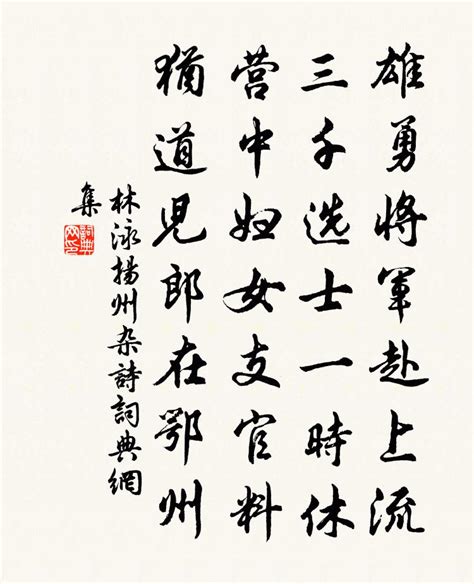 雄勇將軍赴上流
三千选士一時休
营中妇女支官料
猶道児郎在鄂州
林泳揚州杂詩詞典網
集
詞典网印